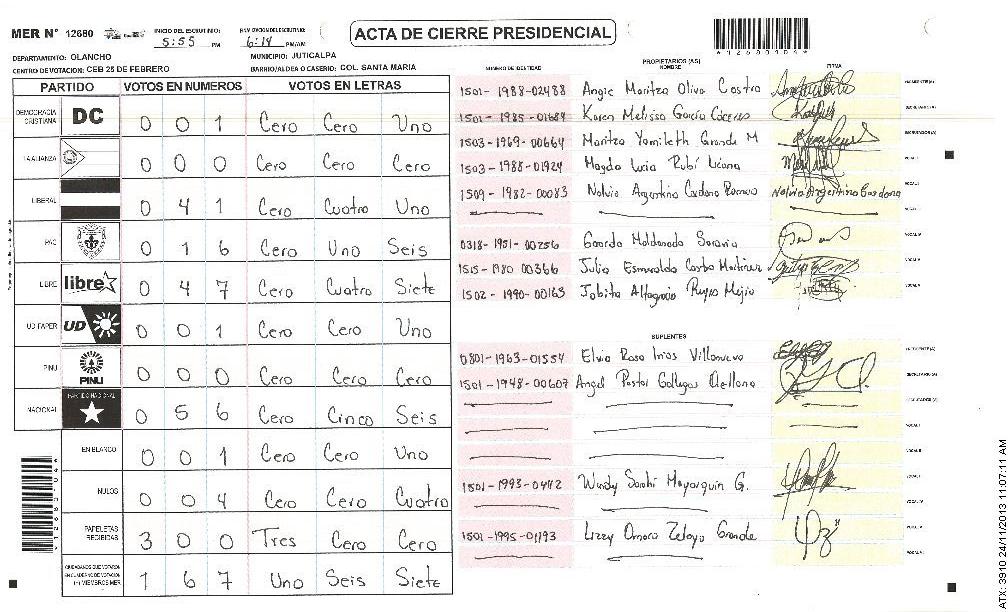 MER N° 12680
INICIO DEL ESCRUTINIO: 5:55 PM
6:14 PM/AM
ACTA DE CIERRE PRESIDENCIAL
*12680104*
DEPARTAMENTO: OLANCHO
MUNICIPIO: JUTICALPA
CENTRO DE VOTACION: CEB 25 DE FEBRERO
BARRIO/ALDEA O CASERIO: COL. SANTA MARIA
PARTIDO VOTOS EN NUMEROS VOTOS EN LETRAS
DEMOCRACIA CRISTIANA DC 0 0 1 Cero Cero Uno
LA ALIANZA 0 0 0 Cero Cero Cero
LIBERAL 0 4 1 Cero Cuatro Uno
PAC 0 1 6 Cero Uno Seis
LIBRE libre 0 4 7 Cero Cuatro Siete
UD FAPER UD 0 0 1 Cero Cero Uno
PINU PINU 0 0 0 Cero Cero Cero
NACIONAL PARTIDO NACIONAL 0 5 6 Cero Cinco Seis
EN BLANCO 0 0 1 Cero Cero Uno
NULOS 0 0 4 Cero Cero Cuatro
PAPELETAS RECIBIDAS 3 0 0 Tres Cero Cero
CIUDADANOS QUE VOTARON 1 6 7 Uno Seis Siete
NÚMERO DE IDENTIDAD PROPIETARIOS (AS) NOMBRE FIRMA
1501-1988-02488 Angie Maritza Oliva Castro
1501-1985-01684 Karen Melissa García Cáceres
1503-1969-00664 Maritza Yamileth Grande M
1503-1988-01924 Magda Lucia Rubí
1509-1982-00083 Nolvia Argentina Cardona Nolvia Argentina Cardona
0318-1951-00256 Maldonado
1515-1980 00366 Julia Esmeralda Martinez
1502-1990-00163 Reyes Mejia
SUPLENTES
0801-1963-01554 Elvia Rosa Villanueva
1501-1948-00607 Angel Pastor Orellana
1501-1993-04112 Wendy Sarahi Mayorquin G.
1501-1995-01193 Lizzy Omara Zelaya Grande
ATX: 3910 24/11/2013 11:07:11 AM